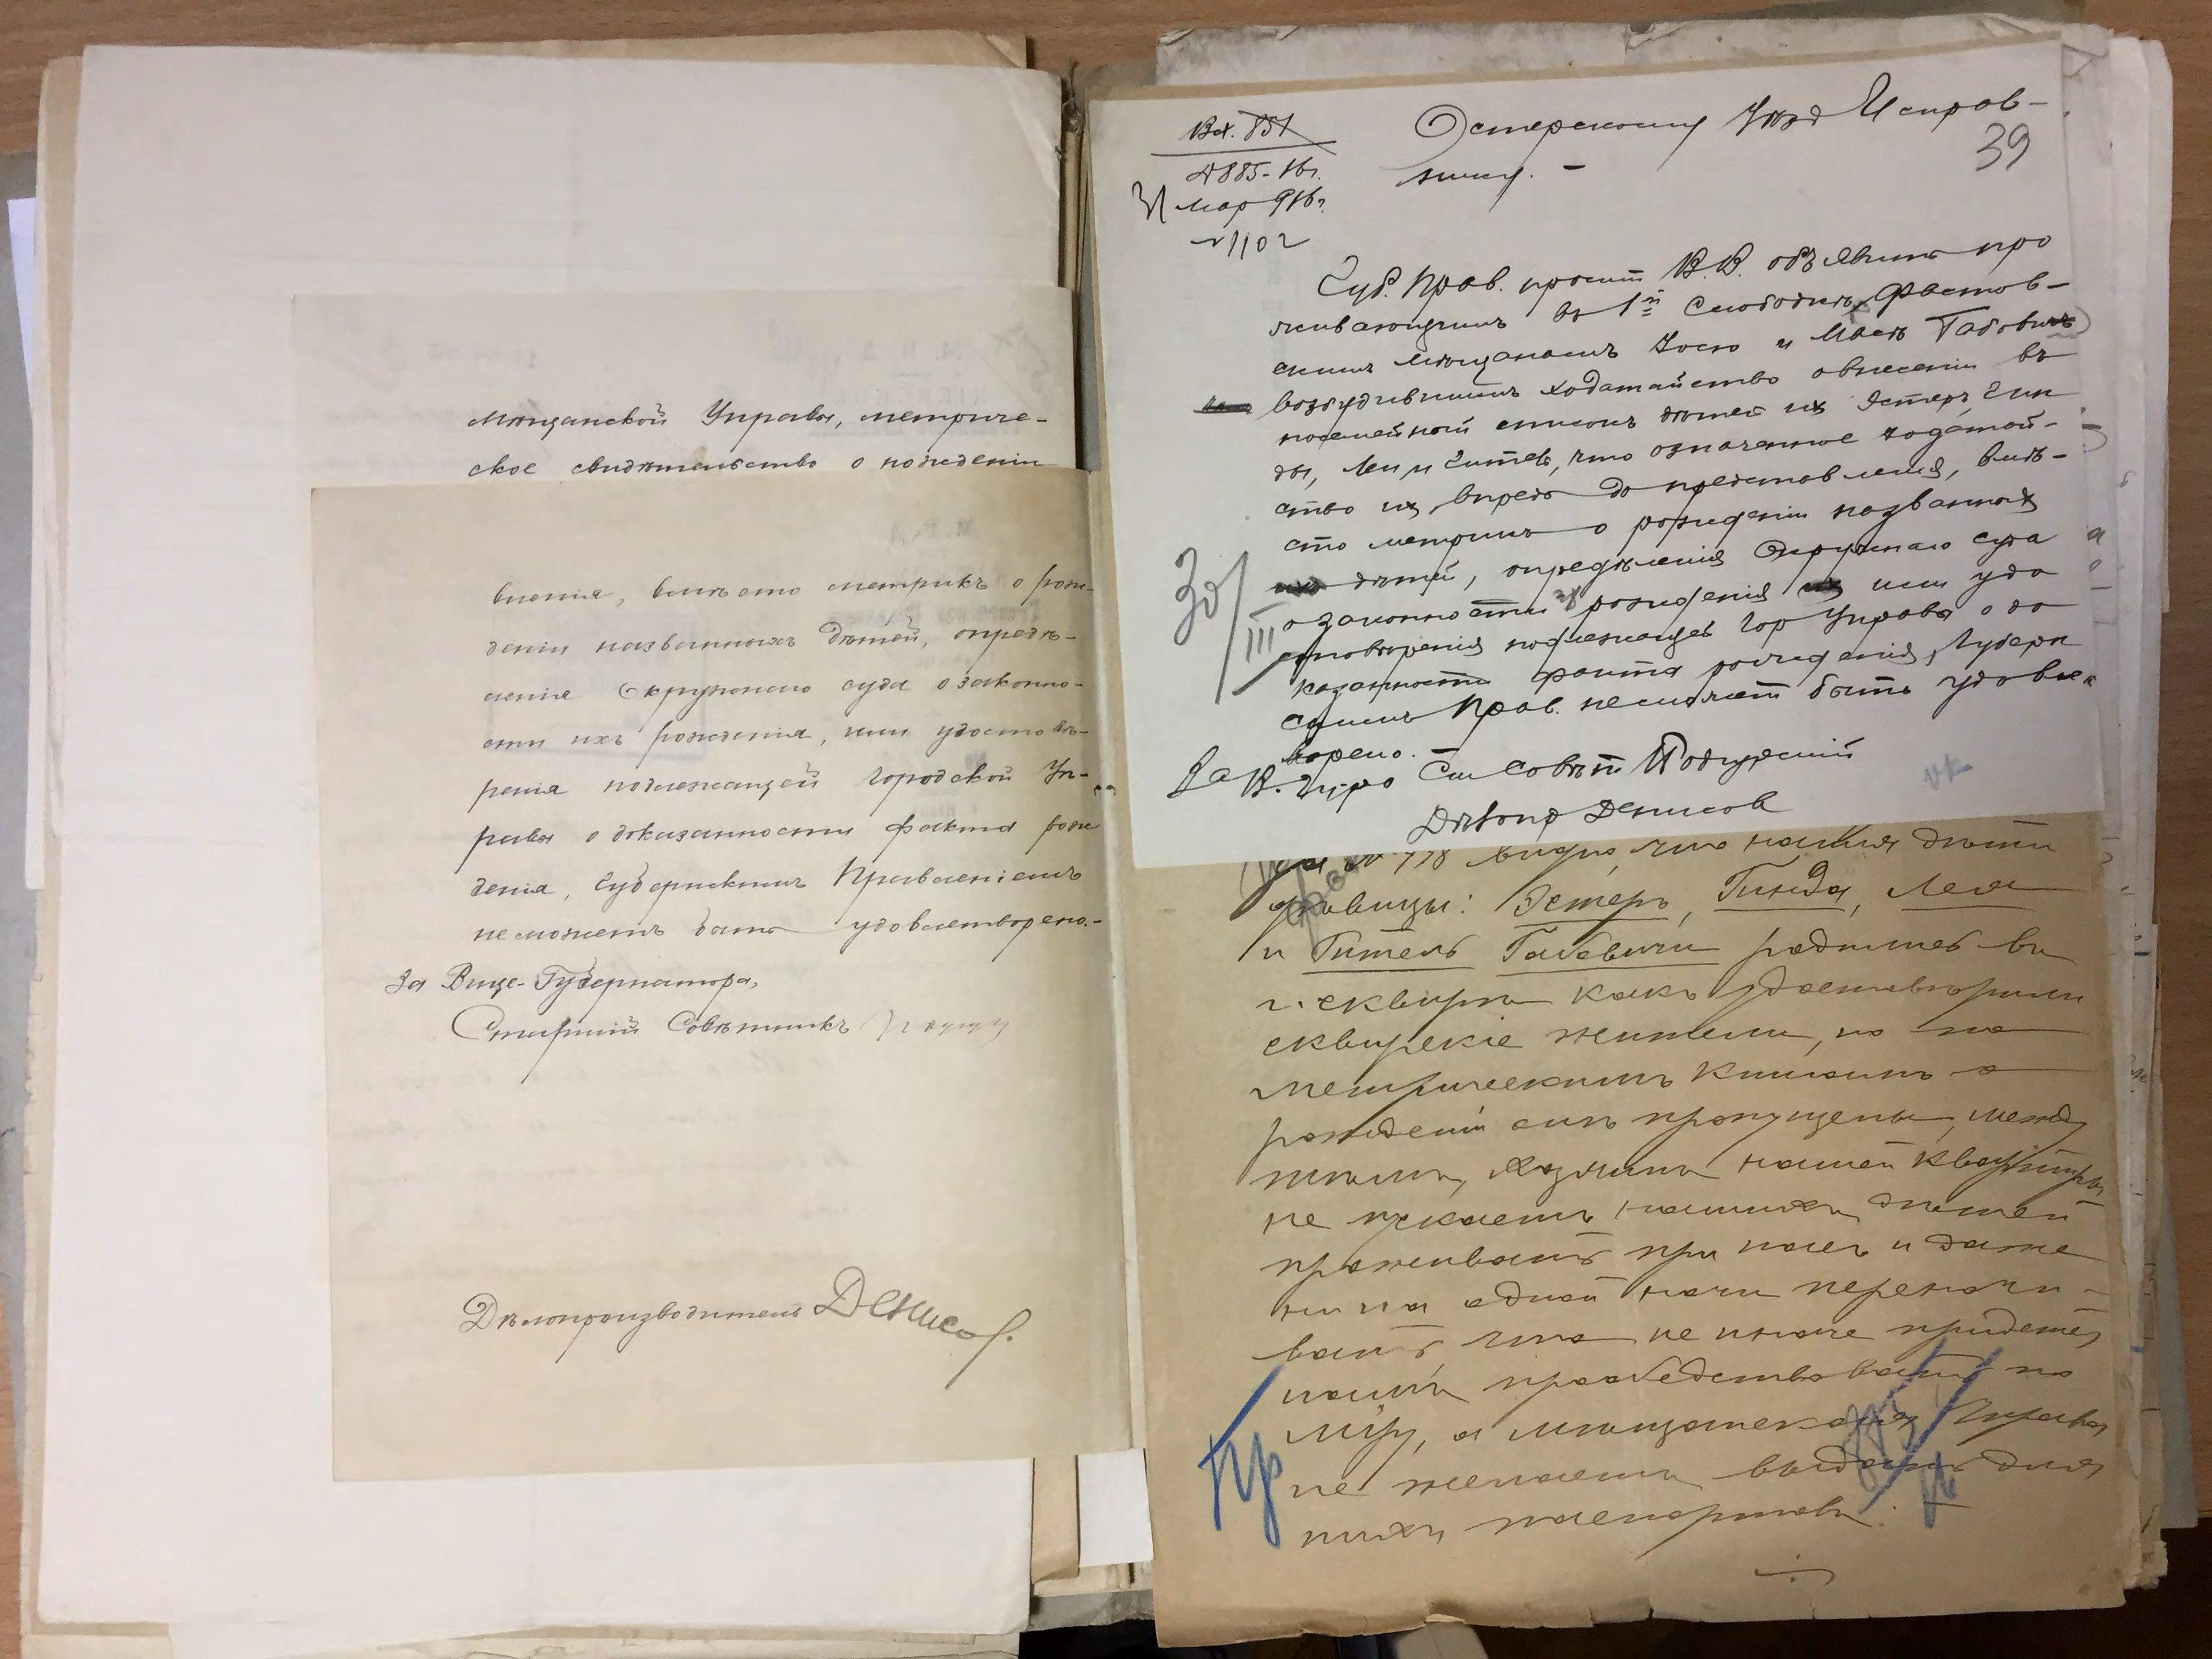 Мѣщанской Управы, метриче-
ское свидѣтельство о рождении
вленія, вмѣсто метрикъ о рож-
деніи названныхъ дѣтей, опредѣ-
ленія Окружнаго суда о законно-
сти ихъ рожденія, или удостовѣ-
ренія подлежащей Городской Уп-
равы о доказанности факта рож
денія, Губернскимъ Правленіемъ
не можетъ быть удовлетворено.-
За Вице-Губернатора,
Старшій Совѣтникъ
Дѣлопроизводитель Денисов.
Вх. 851
№885-16г.
31 мар 916г.
№1102
Остерскому Уѣзд Исправ-
нику. -
39
Губ. Прав. просит В.В. объявить про
живающимъ въ 1й Слободкѣ, Фастов-
скимъ мѣщанамъ Іосю и Масѣ Габович
возбудившимъ ходатайство о внесеніи въ
посемейный списокъ дѣтей их Эстеръ Гин
ды, Леи и Гитель, что означенное ходатай-
ство их, впредь до представленія, вмѣ-
сто метрикъ о рожденіи названных
дѣтей, опредѣленія Окружнаго суда
о законности их рожденія или удо
стовѣренія подлежащей Гор Управы о до
казанности факта рожденія, Губерн
скимъ Прав. не может быть удовле
ворено. -
30/III
За В. Гу-ра Ст Совѣт Подгурскій
Дѣлопр Денисов
видно, что нашия дѣти
дѣвицы: Эстеръ, Гинда, Лея
и Гитель Габовичи родились въ
г. сквирѣ какъ удостовѣрили
сквирскіе жители, но по
метрическимъ книгамъ о
рожденіи онѣ пропущены, между
тѣмъ, хозяинъ нашей квартиры
не пускаетъ нашихъ дѣтей
проживать при насъ и даже
ни на одной ночи переночи-
вать, что не иначе придется
нашимъ по
міру, а мѣщанская Управа
не желаетъ выдать для
нихъ паспортовъ.
Пр